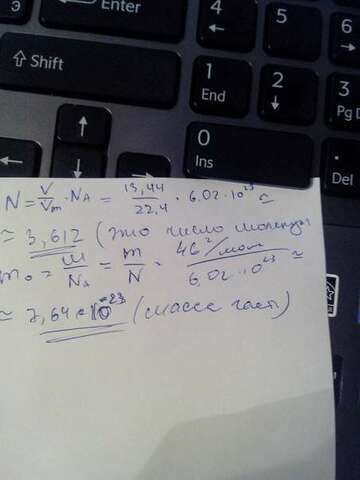 Э
Enter
4
←
5
6
→
Shift
1
End
2
↓
3
Pg D
↑
0
Ins
←
↓
N = V/Vm · NA = 13,44/22,4 · 6.02 · 10²³ ≈
≈ 3,612 (это число молекул
m₀ = M/NA = m/N = 46 г/мол/6,02 · 10²³ ≈
≈ 7,64 · 10⁻²³ (масса част)